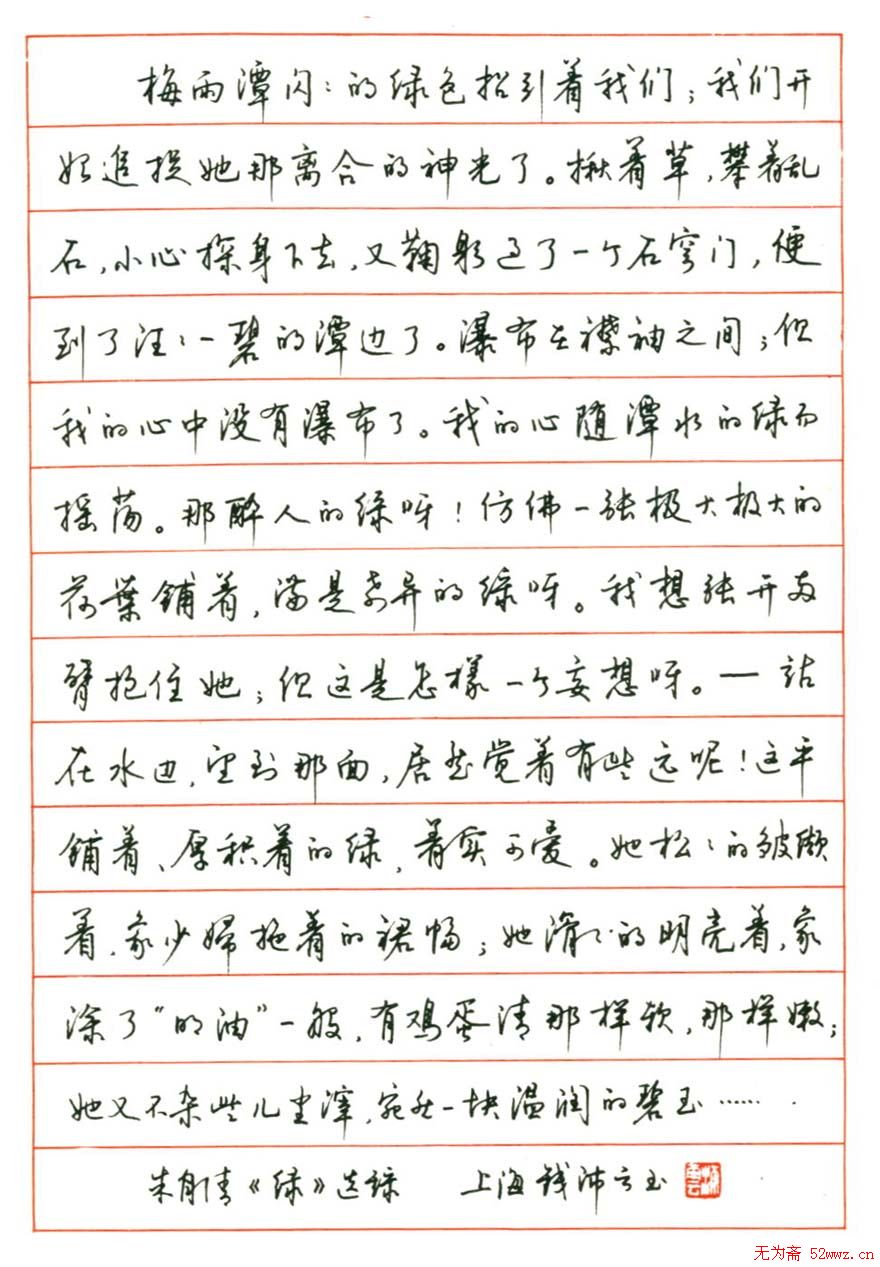 梅雨潭闪:的绿色招引着我们;我们开
始追捉她那离合的神光了。揪着草,攀着乱
石,小心探身下去,又鞠躬过了一个石穹门,便
到了汪:一碧的潭边了。瀑布在襟袖之间;但
我的心中没有瀑布了。我的心随潭水的绿而
摇荡。那醉人的绿呀!仿佛一张极大极大的
荷葉铺着,满是奇异的绿呀。我想张开两
臂抱住她;但这是怎樣一个妄想呀。—站
在水边,望到那面,居然觉着有些远呢!这平
铺着、厚积着的绿,着实可爱。她松:的皱缬
着,象少婦拖着的裙幅;她滑:的明亮着,象
涂了"明油"一般,有鸡蛋清那样软,那样嫩;
她又不杂些儿尘滓,宛然一块温润的碧玉……
朱自清《绿》选录 上海钱沛云书
无为斋 52wwz.cn